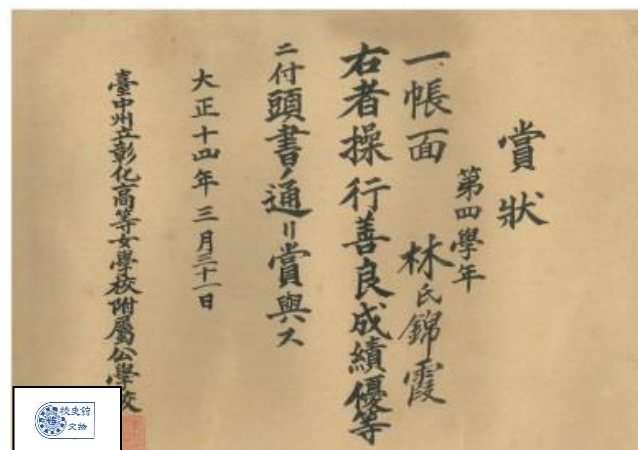 賞狀
第四學年
林氏錦霞
一、帳面
右者操行善良成績優等
ニ付頭書ノ通リ賞與ス
大正十四年三月三十一日
臺中州立彰化高等女學校附屬公學校
校史館
文物